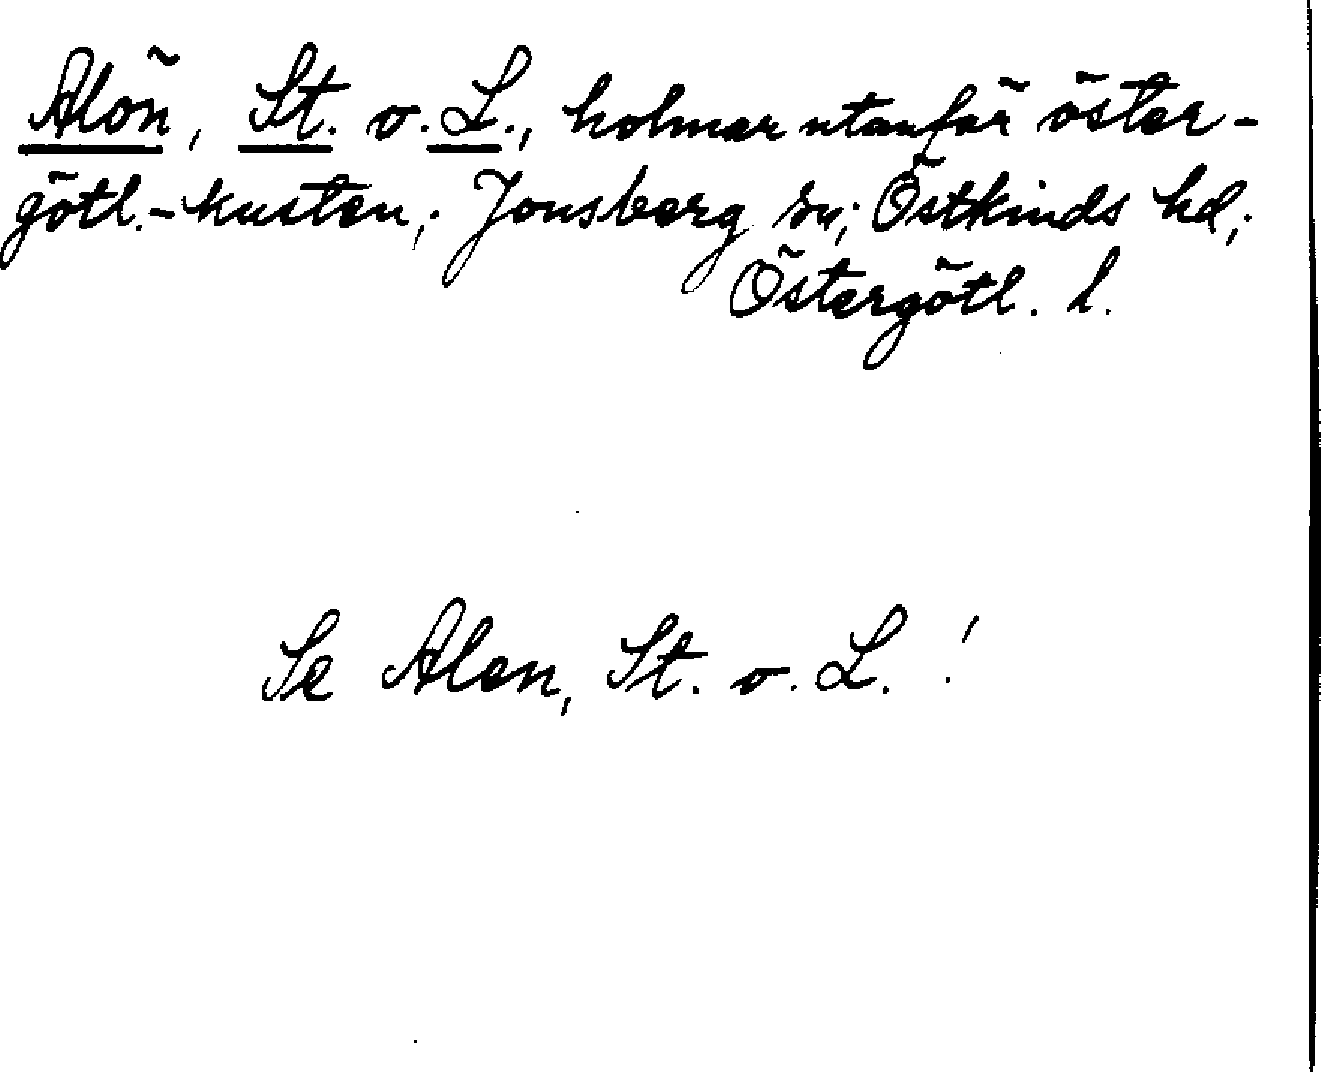 Alön, St. o. L., holmar utanför öster-
götl.-kusten; Jonsberg sn; Östkinds hd;
Östergötl. l.
Se Alen, St. o. L. !